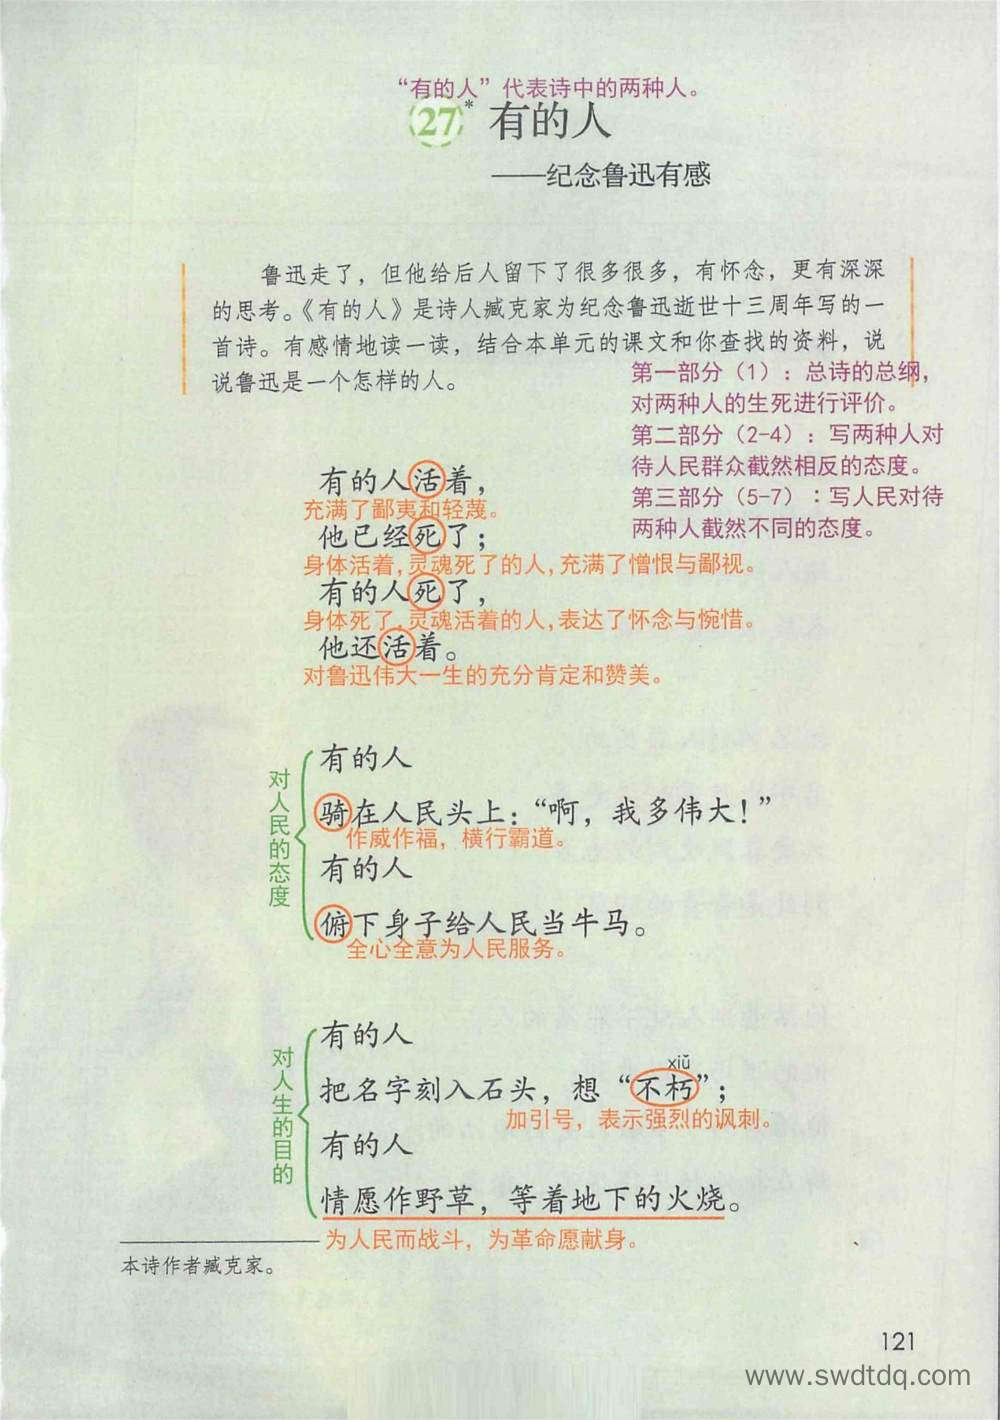 “有的人”代表诗中的两种人。
27* 有的人
——纪念鲁迅有感
鲁迅走了，但他给后人留下了很多很多，有怀念，更有深深
的思考。《有的人》是诗人臧克家为纪念鲁迅逝世十三周年写的一
首诗。有感情地读一读，结合本单元的课文和你查找的资料，说
说鲁迅是一个怎样的人。
第一部分（1）：总诗的总纲，
对两种人的生死进行评价。
第二部分（2-4）：写两种人对
待人民群众截然相反的态度。
第三部分（5-7）：写人民对待
两种人截然不同的态度。
有的人活着，
充满了鄙夷和轻蔑。
他已经死了；
身体活着,灵魂死了的人,充满了憎恨与鄙视。
有的人死了，
身体死了,灵魂活着的人,表达了怀念与惋惜。
他还活着。
对鲁迅伟大一生的充分肯定和赞美。
对人民的态度
有的人
骑在人民头上：“啊，我多伟大！”
作威作福，横行霸道。
有的人
俯下身子给人民当牛马。
全心全意为人民服务。
对人生的目的
有的人
xiǔ
把名字刻入石头，想“不朽”；
加引号，表示强烈的讽刺。
有的人
情愿作野草，等着地下的火烧。
为人民而战斗，为革命愿献身。
本诗作者臧克家。
121
www.swdtdq.com